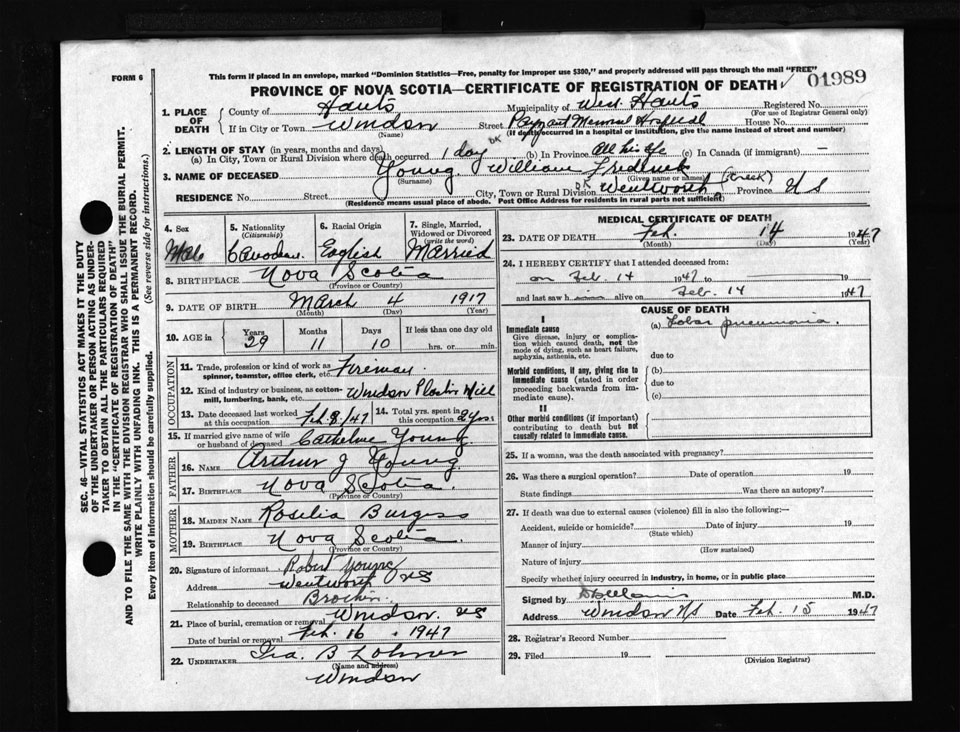 FORM 6
This form if placed in an envelope, marked "Dominion Statistics—Free, penalty for improper use $300," and properly addressed will pass through the mail "FREE"
PROVINCE OF NOVA SCOTIA—CERTIFICATE OF REGISTRATION OF DEATH
01989
1. PLACE OF DEATH
County of Hants Municipality of West Hants Registered No.
(For use of Registrar General only)
If in City or Town Windsor Street Payzant Memorial Hospital House No.
(Name) (If death occurred in a hospital or institution, give the name instead of street and number)
2. LENGTH OF STAY (in years, months and days)
(a) In City, Town or Rural Division where death occurred 1 day (b) In Province All his life (c) In Canada (if immigrant) —
3. NAME OF DECEASED Young William Fredrick
(Surname) (Given name or names)
RESIDENCE No. Street City, Town or Rural Division Wentworth (Creek) Province NS
(Residence means usual place of abode. Post Office Address for residents in rural parts not sufficient)
4. Sex
Male
5. Nationality (Citizenship)
Canadian
6. Racial Origin
English
7. Single, Married, Widowed or Divorced (write the word)
Married
8. BIRTHPLACE Nova Scotia
(Province or Country)
9. DATE OF BIRTH March 4 1917
(Month) (Day) (Year)
10. AGE in Years 29 Months 11 Days 10 If less than one day old
hrs. or min.
OCCUPATION
11. Trade, profession or kind of work as spinner, teamster, office clerk, etc. Fireman
12. Kind of industry or business, as cotton-mill, lumbering, bank, etc. Windsor Plaster Mill
13. Date deceased last worked at this occupation Feb 8/47 14. Total yrs. spent in this occupation 2 yrs
15. If married give name of wife or husband of deceased Catheline Young
FATHER
16. NAME Arthur J Young
17. BIRTHPLACE Nova Scotia
(Province or Country)
MOTHER
18. MAIDEN NAME Rosilia Burgess
19. BIRTHPLACE Nova Scotia
(Province or Country)
20. Signature of informant Robert Young
Address Wentworth NS
Relationship to deceased Brother
21. Place of burial, cremation or removal Windsor. NS
Date of burial or removal Feb. 16. 1947
22. UNDERTAKER Ira. B Lohnes
(Name and address)
Windsor
MEDICAL CERTIFICATE OF DEATH
23. DATE OF DEATH Feb. 14 1947
(Month) (Day) (Year)
24. I HEREBY CERTIFY that I attended deceased from:
on Feb. 14 1947 to 19
and last saw him alive on Feb. 14 1947
CAUSE OF DEATH
I
Immediate cause
Give disease, injury or complication which caused death, not the mode of dying, such as heart failure, asphyxia, asthenia, etc.
(a) Lobar pneumonia.
due to
Morbid conditions, if any, giving rise to immediate cause (stated in order proceeding backwards from immediate cause).
(b)
due to
(c)
II
Other morbid conditions (if important) contributing to death but not causally related to immediate cause.
25. If a woman, was the death associated with pregnancy?
26. Was there a surgical operation? Date of operation 19
State findings Was there an autopsy?
27. If death was due to external causes (violence) fill in also the following:—
Accident, suicide or homicide? Date of injury 19
(State which)
Manner of injury
(How sustained)
Nature of injury
Specify whether injury occurred in industry, in home, or in public place
Signed by M.D.
Address Windsor NS Date Feb. 15 1947
28. Registrar's Record Number
29. Filed 19
(Division Registrar)
SEC. 46—VITAL STATISTICS ACT MAKES IT THE DUTY
OF THE UNDERTAKER OR PERSON ACTING AS UNDER-
TAKER TO OBTAIN ALL THE PARTICULARS REQUIRED
IN THE "CERTIFICATE OF REGISTRATION OF DEATH"
AND TO FILE THE SAME WITH THE DIVISION REGISTRAR WHO SHALL ISSUE THE BURIAL PERMIT.
WRITE PLAINLY WITH UNFADING INK. THIS IS A PERMANENT RECORD.
Every item of information should be carefully supplied. (See reverse side for instructions.)